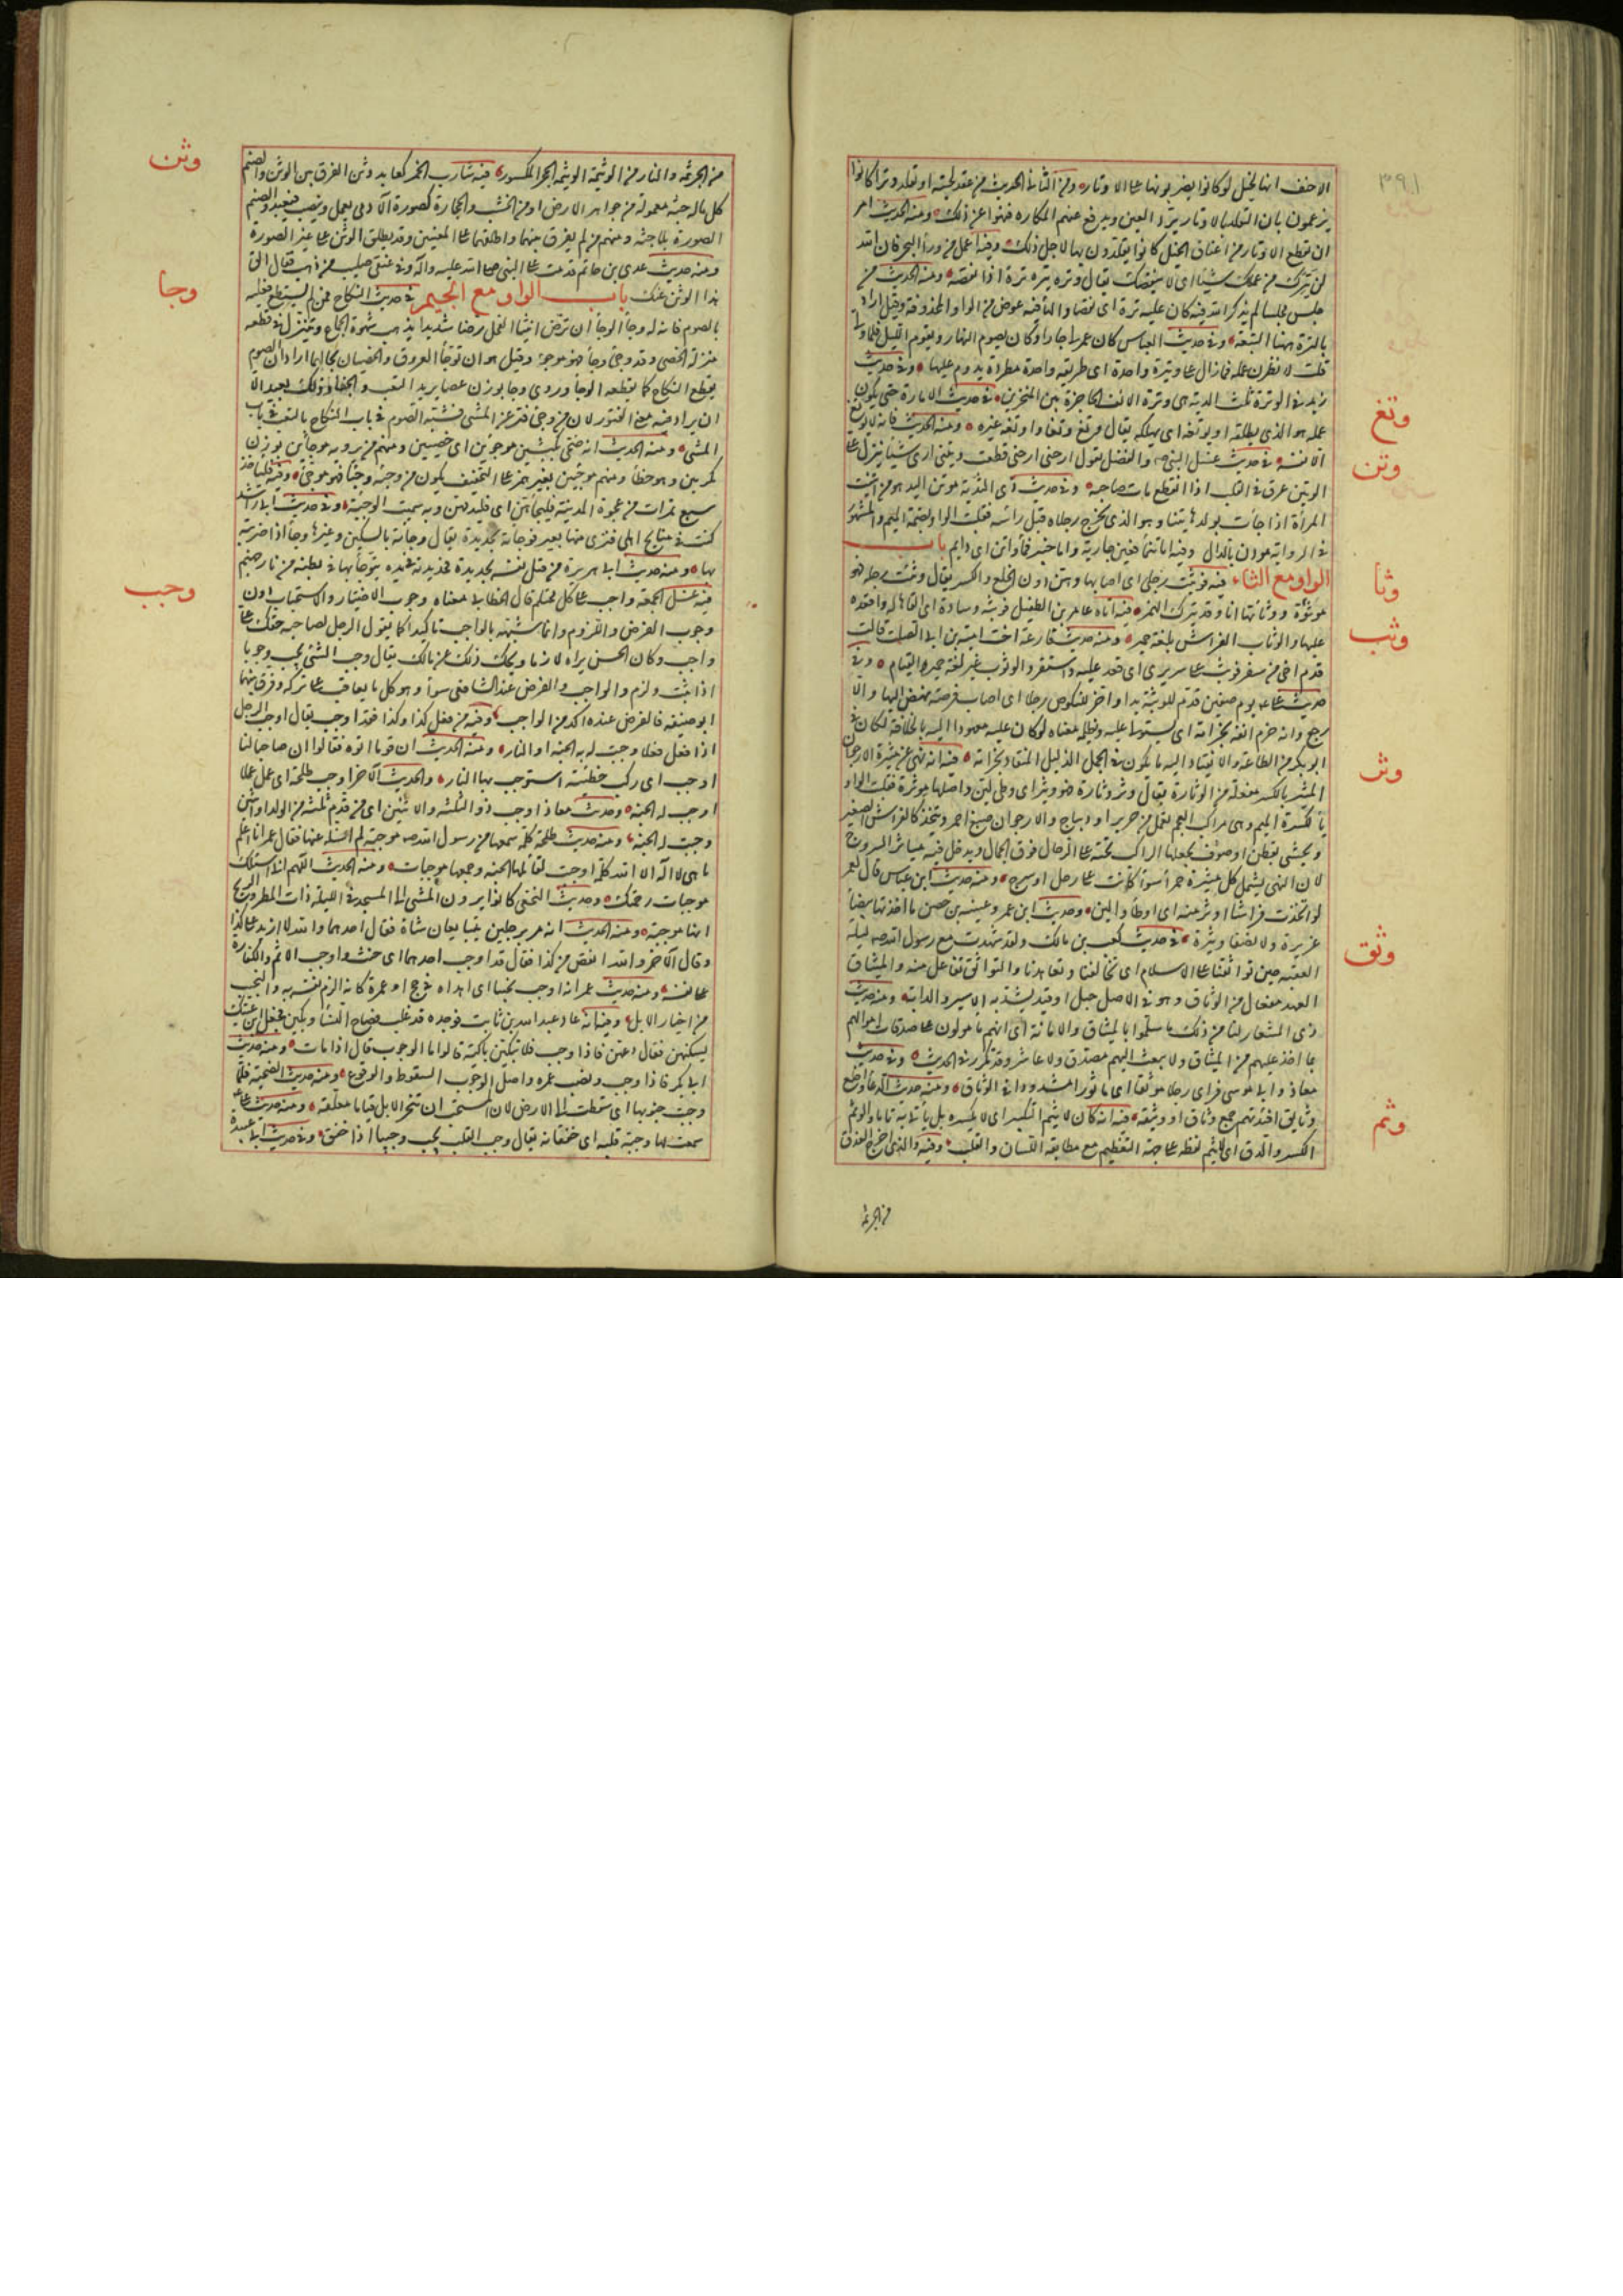 ٣٩١
الاحنف انها لخيل لوكانوا يضربونها على الاوتار ومن الثانى الحديث من عقد لحيته او تقلد وترا كانوا
يزعمون بان التقلد بالاوتار يرد العين ويدفع عنهم المكاره فنهوا عن ذلك ومنه الحديث امر
ان تقطع الاوتار من اعناق الخيل كانوا يقلدون بها لاجل ذلك وفيه اعمل من وراء البحر فان الله
لن يترك من عملك شيئا اى لا ينقصك يقال وتره يتره ترة اذا نقصه ومنه الحديث من
جلس مجلسا لم يذكر الله فيه كان عليه ترة اى نقصا والتاء فيه عوض من الواو المحذوفة وقيل اراد
بالترة ههنا التبعة وفى حديث العباس كان عمر لى جارا وكان يصوم النهار ويقوم الليل فلما ولى
قلت لانظرن عمله فما زال على وتيرة واحدة اى طريقة واحدة مطردة يدوم عليها وفى حديث
زيد فى الوترة ثلث الدية هى وترة الانف الحاجزة بين المنخرين فى حديث الامارة حتى يكون
وتغ
عمله هو الذى يطلقه او يوتغه اى يهلكه يقال وتغ وتغا واوتغه غيره ومنه الحديث فانه لا يوتغ
وتن
الا نفسه فى حديث غسل النبى ص والفضل يقول ارحنى ارحنى قطعت وتينى ارى شيئا ينزل على
الوتين عرق فى القلب اذا انقطع مات صاحبه وفى حديث ذى الثدية موتن اليد هو من ايتنت
المرأة اذا جاءت بولدها يتنا وهو الذى تخرج رجلاه قبل رأسه فقلبت الواو لضمة الميم والمشهور
فى الرواية مودن بالدال وفيه اما تيماء فعين جارية واما خيبر فماء واتن اى دايم باب
الواو مع الثاء فيه فوثئت رجلى اى اصابها وهن دون الخلع والكسر يقال وثئت رجله فهو
وثا
موثوءة ووثأتها انا وقد يترك الهمز فيه اتاه عامر بن الطفيل فوثبه وسادة اى القاها له واقعده
وثب
عليها والوثاب الفراش بلغة حمير ومنه حديث فارعة اخت امية بن ابى الصلت قالت
قدم اخى من سفر فوثب على سريرى اى قعد عليه واستقر والوثوب بغير لغة حمير القيام وفى
حديث على ع يوم صفين قدم للوثبة يدا واخر للنكوص رجلا اى اصاب فرصة نهض اليها والا
رجع وانه خزم انفه بخزامة اى يستولى عليه ويظلمه معناه لو كان على معهودا اليه بالخلافة لكان فى
ابو بكر من الطاعة والانقياد اليه ما يكون فى الجمل الذليل المنقاد بخزامته فيه انه نهى عن ميثرة الارجوان
وثر
الميثرة بالكسر مفعلة من الوثارة يقال وثر وثارة فهو وثير اى وطى لين واصلها موثرة فقلبت الواو
ياء لكسرة الميم وهى مراكب العجم تعمل من حرير او ديباج والارجوان صبغ احمر ويتخذ كالفراش الصغير
ويحشى بقطن او صوف يجعلها الراكب تحته على الرحال فوق الجمال ويدخل فيه مياثر السروج
لان النهى يشمل كل ميثرة حمراء سواء كانت على رحل او سرج ومنه حديث ابن عباس قال لعمر
لو اتخذت فراشا اوثر منه اى اوطأ والين وحديث ابن عمر وعيينة بن حصن ما اخذتها بيضاء
غريرة ولا نصفا وثيرة فى حديث كعب بن مالك ولقد شهدت مع رسول الله ص ليلة
وثق
العقبة حين تواثقنا على الاسلام اى تحالفنا وتعاهدنا والتواثق تفاعل منه والميثاق
العهد مفعال من الوثاق وهو فى الاصل حبل او قيد يشد به الاسير والدابة ومنه حديث
ذى المشعار لنا من ذلك ما سلموا بالميثاق والامانة اى انهم مأمونون على صدقات اموالهم
بما اخذ عليهم من الميثاق ولا يبعث اليهم مصدق ولا عاشر وقد تكرر فى الحديث وفى حديث
معاذ وابى موسى فراى رجلا موثقا اى مأثورا مشدودا فى الوثاق ومنه حديث الدعاء واخلع
وثايق افئدتهم جمع وثاق او وثيقة فيه انه كان لا يثم التكبير اى لا يكسره بل يأتى به تاما والوثم
وثم
الكسر والدق اى لا يتم لفظه على جهة التعظيم مع مطابقة اللسان والقلب وفيه والذى اخرج العذق
من الجريمة
من الجريمة والنار من الوثيمة الوثيمة الحجر المكسور فيه شارب الخمر كعابد وثن الفرق بين الوثن والصنم
وثن
كل ما له جثة معمولة من جواهر الارض او من الخشب والحجارة كصورة الآدمى يعمل وينصب فيعبد والصنم
الصورة بلا جثة ومنهم من لم يفرق بينهما واطلقهما على المعنيين وقد يطلق الوثن على غير الصورة
ومنه حديث عدى بن حاتم قدمت على النبى صلى الله عليه وآله وفى عنقى صليب من ذهب فقال الق
هذا الوثن عنك باب الواو مع الجيم فى حديث النكاح فمن لم يستطع فعليه
وجا
بالصوم فانه له وجاء الوجاء ان ترض انثيا الفحل رضا شديدا يذهب شهوة الجماع ويتنزل فى قطعه
منزلة الخصى وقد وجئ وجاء فهو موجوء وقيل هو ان توجأ العروق والخصيان بحالهما اراد ان الصوم
يقطع النكاح كما يقطعه الوجاء وروى وجا بوزن عصا يريد التعب والحفا وذلك بعيد الا
ان يراد فيه معنى الفتور لان من وجى فتر عن المشى فشبه الصوم فى باب النكاح بالتعب فى باب
المشى ومنه الحديث انه ضحى بكبشين موجوئين اى خصيين ومنهم من يرويه موجأين بوزن
مكرمين وهو خطأ ومنهم موجيين بغير همز على التخفيف يكون من وجيته وجيا فهو موجى وفيه فلياخذ
سبع تمرات من عجوة المدينة فليجأهن اى فليدقهن وبه سميت الوجيئة وفى حديث ابى راشد
كنت فى منايح اهلى فنزى منها بعير فوجأته بحديدة يقال وجأته بالسكين وغيرها وجأ اذا ضربته
بها ومنه حديث ابى هريرة من قتل نفسه بحديدة فحديدته فى يده يتوجأ بها فى بطنه من نار جهنم
فيه غسل الجمعة واجب على كل محتلم قال الخطابى معناه وجوب الاختيار والاستحباب دون
وجب
وجوب الفرض واللزوم وانما شبهه بالواجب تاكيدا كما يقول الرجل لصاحبه حقك على
واجب وكان الحسن يراه لازما وحكى ذلك عن مالك يقال وجب الشئ يجب وجوبا
اذا ثبت ولزم والواجب والفرض عند الشافعى سواء وهو كل ما يعاقب على تركه وفرق بينهما
ابو حنيفة فالفرض عنده آكد من الواجب وفيه من فعل كذا وكذا فقد اوجب يقال اوجب الرجل
اذا فعل فعلا وجبت له به الجنة او النار ومنه الحديث ان قوما اتوه فقالوا ان صاحبا لنا
اوجب اى ركب خطيئة استوجب بها النار والحديث الآخر اوجب طلحة اى عمل عملا
اوجب له الجنة وحديث معاذ اوجب ذو الثلثة والاثنين اى من قدم ثلثة من الولد او اثنين
وجبت له الجنة ومنه حديث طلحة كلمة سمعتها من رسول الله ص موجبة لم اسئله عنها فقال عمر انا اعلم
ما هى لا اله الا الله كلمة اوجبت لقائلها الجنة وجمعها موجبات ومنه الحديث اللهم انى اسئلك
موجبات رحمتك وحديث النخعى كانوا يرون المشى الى المسجد فى الليلة ذات المطر والريح
انها موجبة ومنه الحديث انه مر برجلين يتبايعان شاة فقال احدهما والله لا ازيد على كذا
وقال الآخر والله لا انقص من كذا فقال قد اوجب احدهما اى حنث واوجب الاثم والكفارة
على نفسه ومنه حديث عمر انه اوجب نجيبا اى اهداه فى حج او عمرة كانه الزم نفسه به والنجيب
من اخيار الابل وفيه انه عاد عبدالله بن ثابت فوجده قد غلب فصاح النساء وبكين فجعل ابن عتيك
يسكتهن فقال دعهن فاذا وجب فلا تبكين باكية قالوا ما الوجوب قال اذا مات ومنه حديث
ابى بكر فاذا وجب ونضب عمره واصل الوجوب السقوط والوقوع ومنه حديث الضحية فلما
وجبت جنوبها اى سقطت الى الارض لان المستحب ان تنحر الابل قياما معلقة ومنه حديث على
سمعت لها وجبة قلبه اى خفقانه يقال وجب القلب يجب وجيبا اذا خفق وفى حديث ابى عبيدة